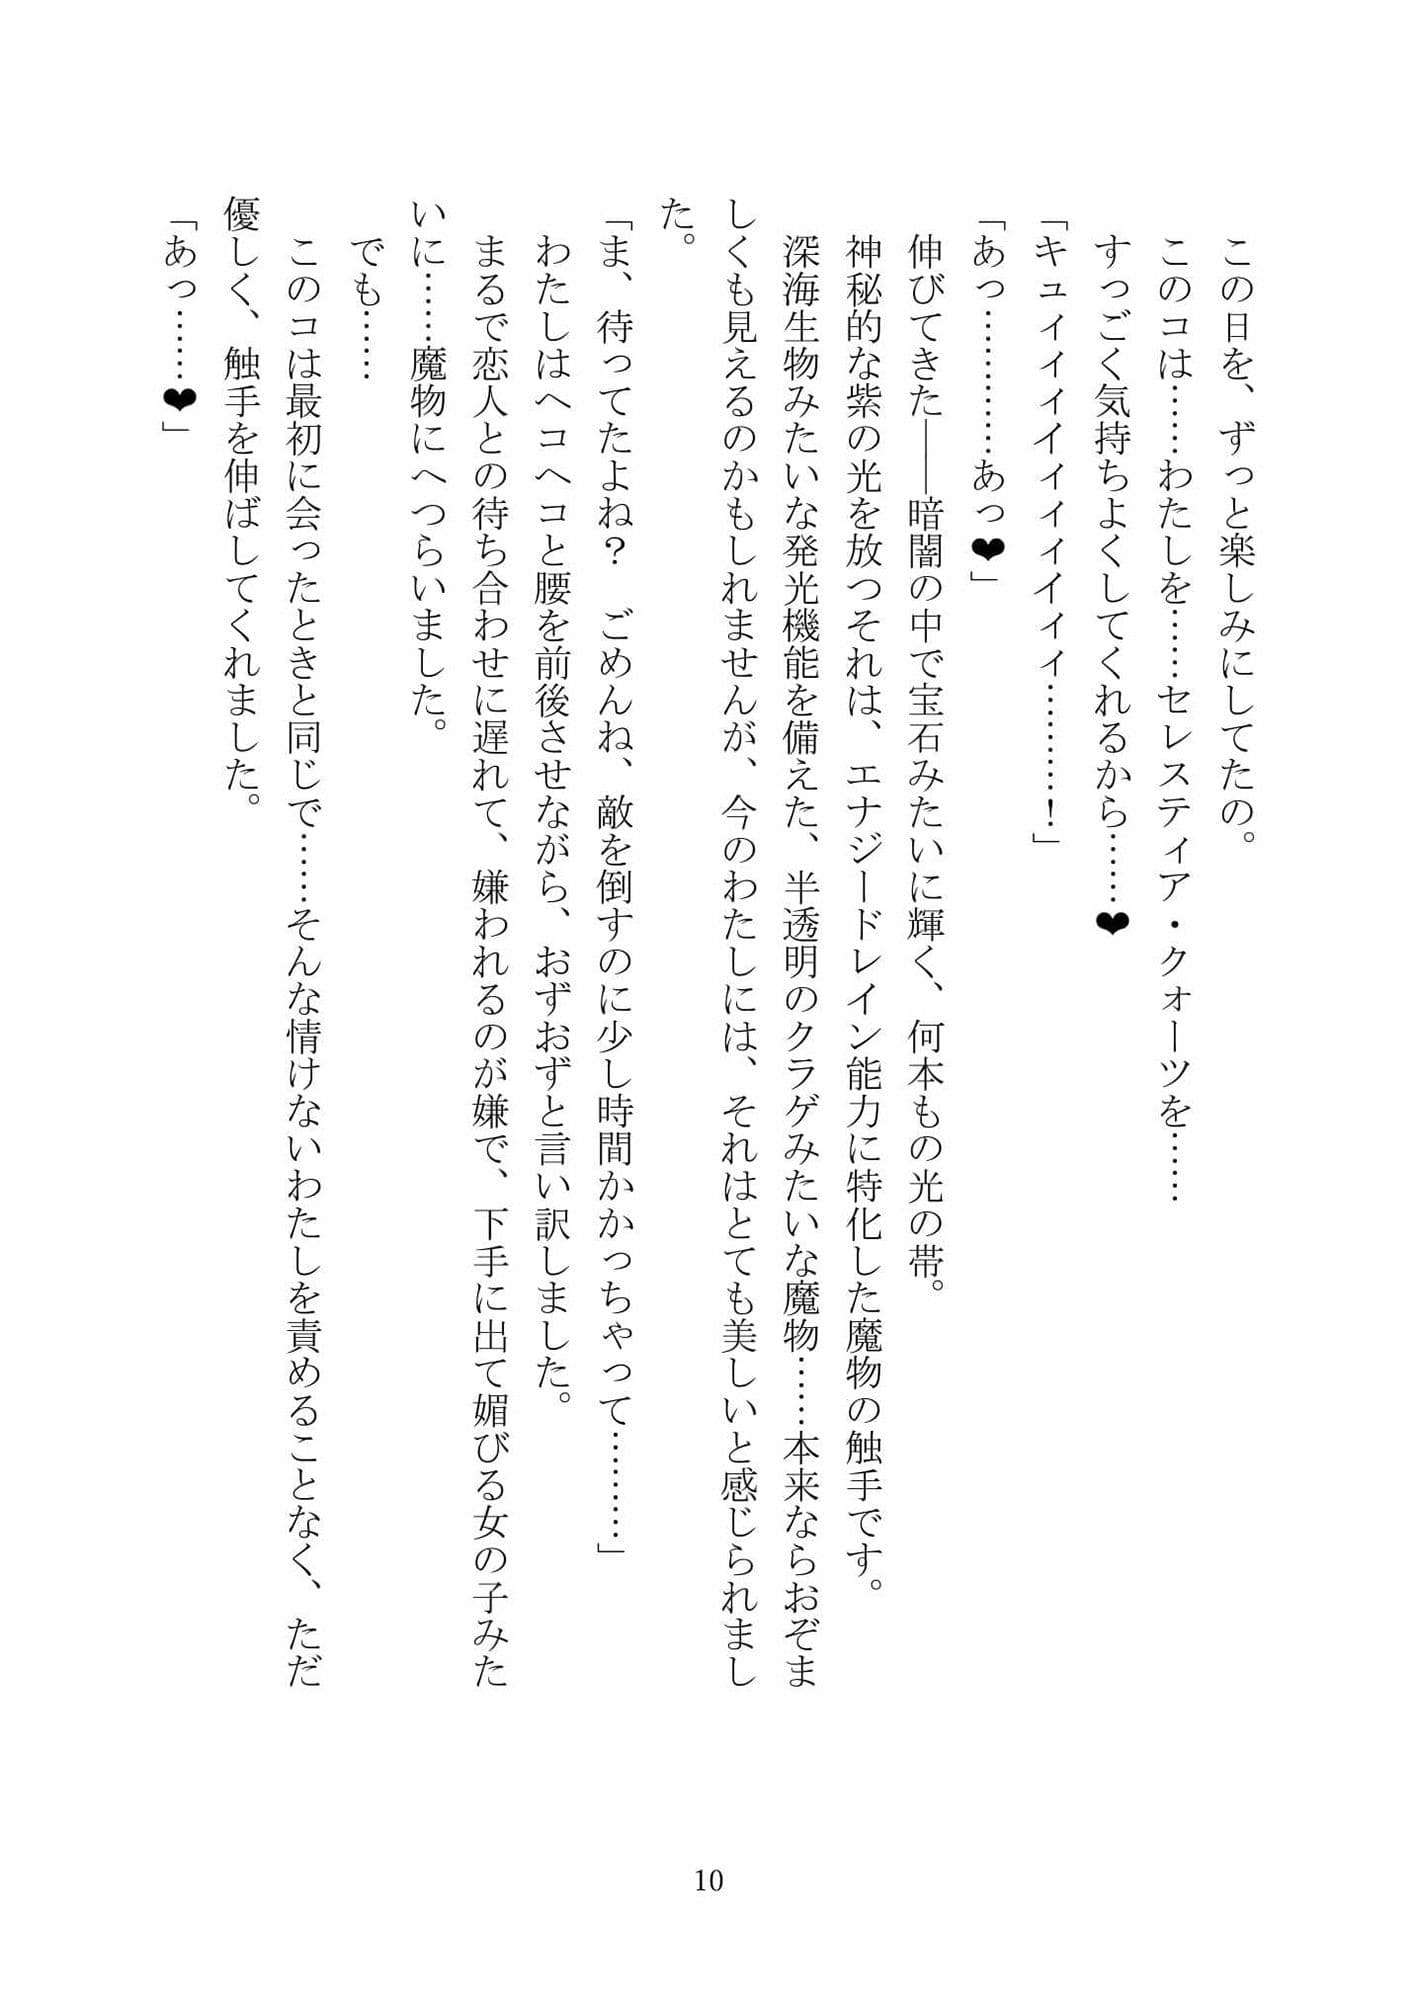 この日を、ずっと楽しみにしてたの。
このコは……わたしを……セレスティア・クォーツを……
すっごく気持ちよくしてくれるから……❤
「キュィィィイィィィイィィ…………！」
「あっ…………あっ❤」
伸びてきた――暗闇の中で宝石みたいに輝く、何本もの光の帯。
神秘的な紫の光を放つそれは、エナジードレイン能力に特化した魔物の触手です。
深海生物みたいな発光機能を備えた、半透明のクラゲみたいな魔物……本来ならおぞま
しくも見えるのかもしれませんが、今のわたしには、それはとても美しいと感じられまし
た。
「ま、待ってたよね？　ごめんね、敵を倒すのに少し時間かかっちゃって…………」
わたしはヘコヘコと腰を前後させながら、おずおずと言い訳しました。
まるで恋人との待ち合わせに遅れて、嫌われるのが嫌で、下手に出て媚びる女の子みた
いに……魔物にへつらいました。
でも……
このコは最初に会ったときと同じで……そんな情けないわたしを責めることなく、ただ
優しく、触手を伸ばしてくれました。
「あっ……❤」
10